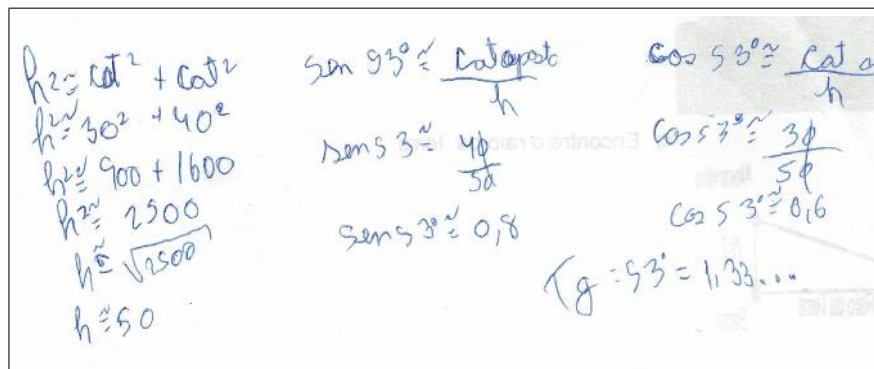 h² ≅ cat² + cat²
h² ≅ 30² + 40²
h² ≅ 900 + 1600
h² ≅ 2500
h ≅ √2500
h ≅ 50
sen 53° ≅ cat opost / h
sen 53 ≅ 40 / 50
sen 53° ≅ 0,8
cos 53° ≅ cat a / h
cos 53° ≅ 30 / 50
cos 53° ≅ 0,6
Tg = 53° = 1,33...
Encontre o raio da